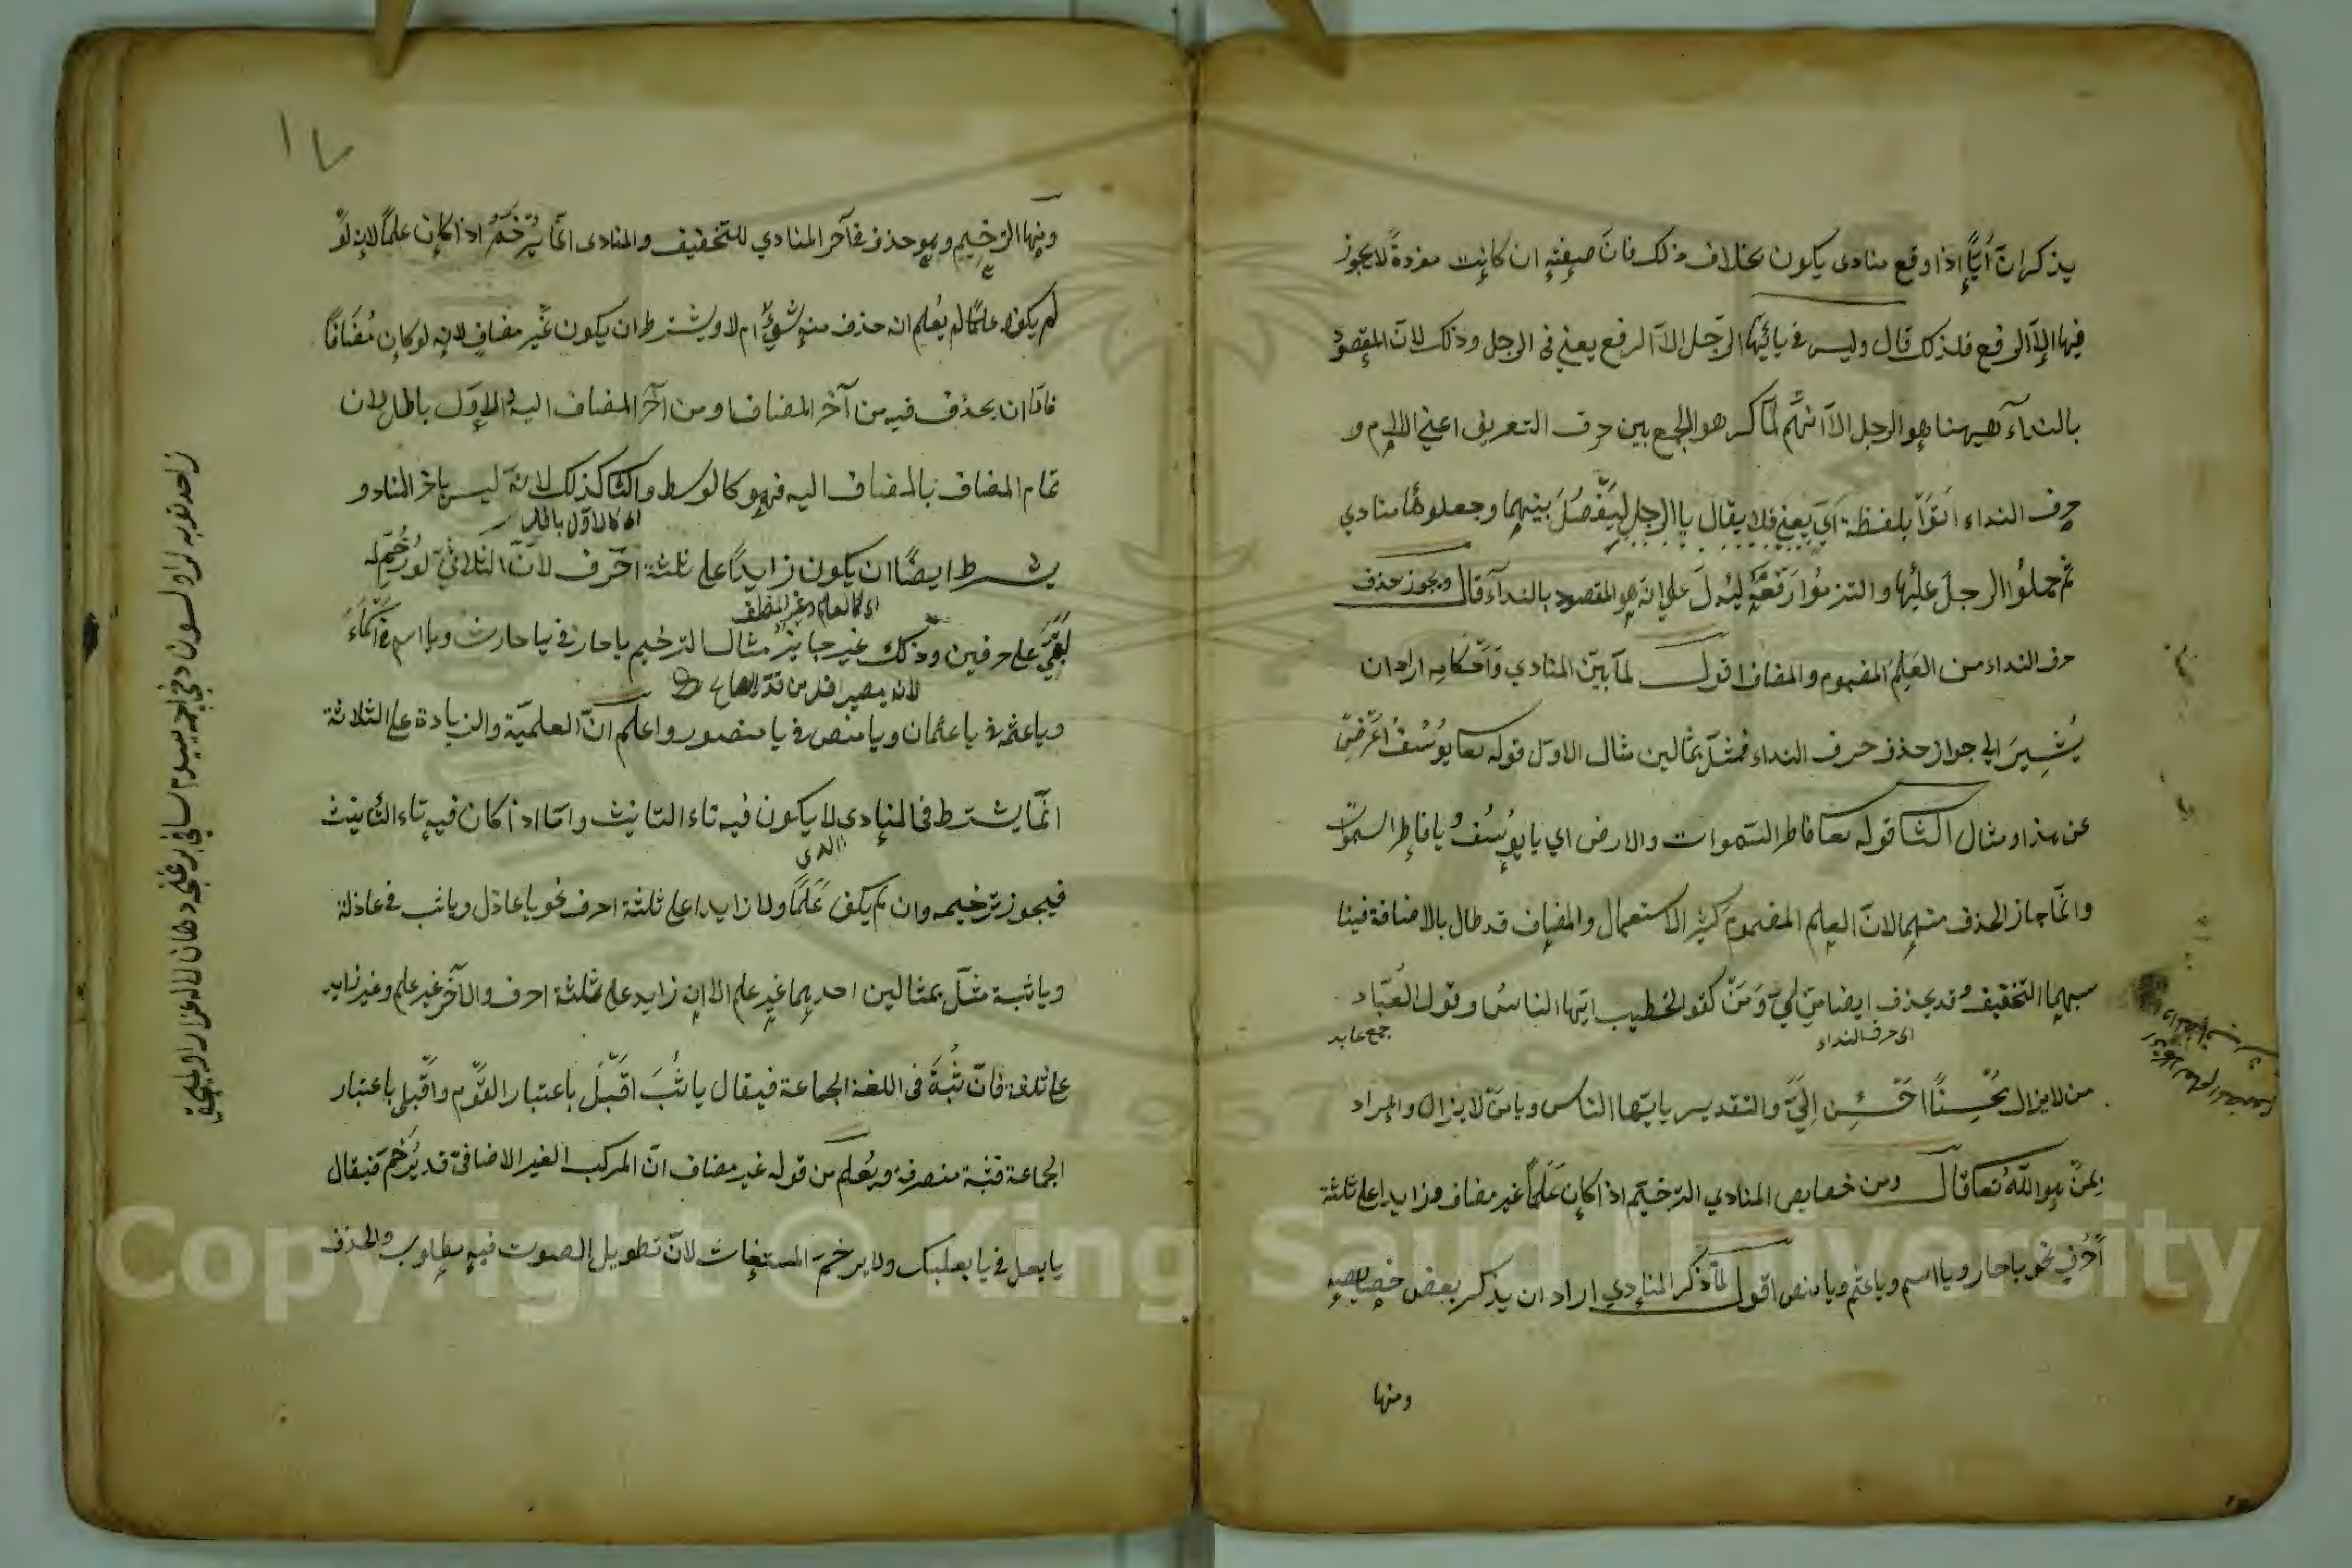 يذكر ان ايًّا اذا وقع منادى يكون بخلاف ذلك فان صفته ان كانت مفردةً لا يجوز
فيها الا الرفع فلذلك قال وليس فى يا ايّها الرّجل الاّ الرفع يعني فى الرجل وذلك لانّ المقصود
بالنداء ههنا هو الرجل الا انّهم لمّا كرهوا الجمع بين حرف التعريف اعني اللام و
حرف النداء اتوا بلفظة اىّ يعني فلا يقال يا الرجل ليفصل بينهما وجعلوها منادي
ثمّ حملوا الرجل عليها والتزموا رفعه ليدل على انه هو المقصود بالنداء قال ويجوز حذف
حرف النداء من العلم المضموم والمضاف اقول لمّا بيّن المنادي واحكامه اراد ان
يشير الى جواز حذف حرف النداء فمثّل بمثالين مثال الاوّل قوله تعا يوسُفُ اعرض
عن هذا ومثال الثا قوله تعا فاطر السّموات والارض اي يا يوسُفُ يا فاطر السموات
وانّما جاز الحذف منهما لانّ العلم المضموم كثير الاستعمال والمضاف قد طال بالاضافة فينا
سبهما التخفيف وقد يحذف ايضا من اىّ ومَنْ كقول الخطيب ايّها الناسُ وقول العبّاد
اى حرف النداء
جمع عابد
من لا يزال محسنًا احسن اليّ والتقدير يا ايّها الناس ويا من لا يزال والمراد
بمن هو اللّه تعا قال ومن خصايص المنادي الترخيم اذا كان علمًا غير مضاف وزايدا على ثلثة
احرف نحو يا حار ويا اسم ويا عثم ويا منص اقول لمّا ذكر المنادي اراد ان يذكر بعض خصايصه
ومنها
ومنها الترخيم وهو حذف فى آخر المنادي للتخفيف والمنادى انّما يرخّم اذا كان علمًا لانه لو
لم يكن علمًا لم يُعلم انه حذف منه شئ ام لا ويشترط ان يكون غير مضاف لانه لو كان مُضافًا
فامّا ان يحذف فيه من آخر المضاف او من آخر المضاف اليه والاوّل باطل لان
تمام المضاف بالمضاف اليه فهو كالوسط والثا كذلك لانه ليس باخر المنادى و
اى كالاول باطل
يشترط ايضًا ان يكون زايدًا على ثلثة احرف لانّ الثلاثي لو رُخّم
اى كالعلم وغير المضاف
لبقي على حرفين وذلك غير جايز مثال الترخيم يا حار فى يا حارث ويا اسم فى اسماء
ويا عثم فى يا عثمان ويا منص فى يا منصور واعلم انّ العلميّة والزيادة على الثلاثة
انّما يشترط فى المنادى لا يكون فيه تاء التانيث وامّا اذا كان فيه تاء التأنيث
الذى
فيجوز ترخيمه وان لم يكن علَمًا ولا زايدا على ثلثة احرف نحو يا عاذل ويا ثب فى عاذلة
ويا ثبة مثّل بمثالين احدهما غير علم الا انه زايد على ثلثة احرف والآخر غير علم وغير زايد
على ثلثة فانّ ثُبةً فى اللغة الجماعة فيقال يا ثُبَ اقبل باعتبار القوم واقبلى باعتبار
الجماعة فثبة منصرفة ويُعلم من قوله غير مضاف انّ المركب الغير الاضافى قد يُرخّم فيقال
يا بعل فى يا بعلبك ولا يرخم المستغاث لانّ تطويل الصوت فيه مطلوب والحذف